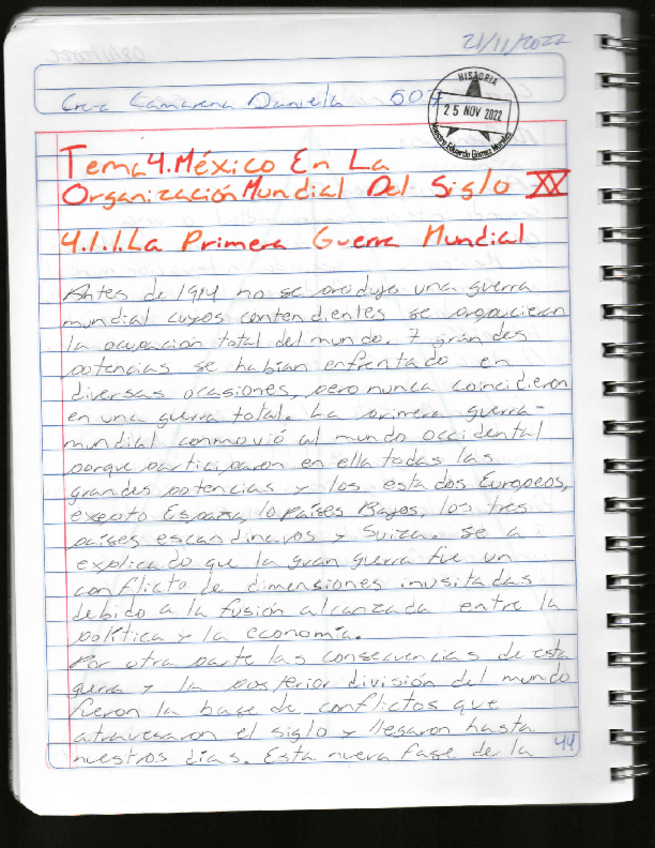 21/11/2022
Cruz Camarena Daniela 507
HISTORIA
25 NOV 2022
Maestro Eduardo Gómez Morales
Tema 4. México En La
Organización Mundial Del Siglo XX
4.1.1. La Primera Guerra Mundial
Antes de 1914 no se produjo una guerra
mundial cuyos contendientes se propucieran
la ocupación total del mundo. 7 grandes
potencias se habían enfrentado en
diversas ocasiones, pero nunca coincidieron
en una guerra total. La primera guerra-
mundial conmovió al mundo occidental
porque participaron en ella todas las
grandes potencias y los estados Europeos,
exepto España, lo países Bajos, los tres
países escandinavos y Suiza. se a
explicado que la gran guerra fue un
conflicto de dimensiones inusitadas
debido a la fusión alcanzada entre la
política y la economía.
Por otra parte las consecuencias de esta
guerra y la posterior división del mundo
fueron la base de conflictos que
atravesaron el siglo y llegaron hasta
nuestros días. Esta nueva fase de la
44